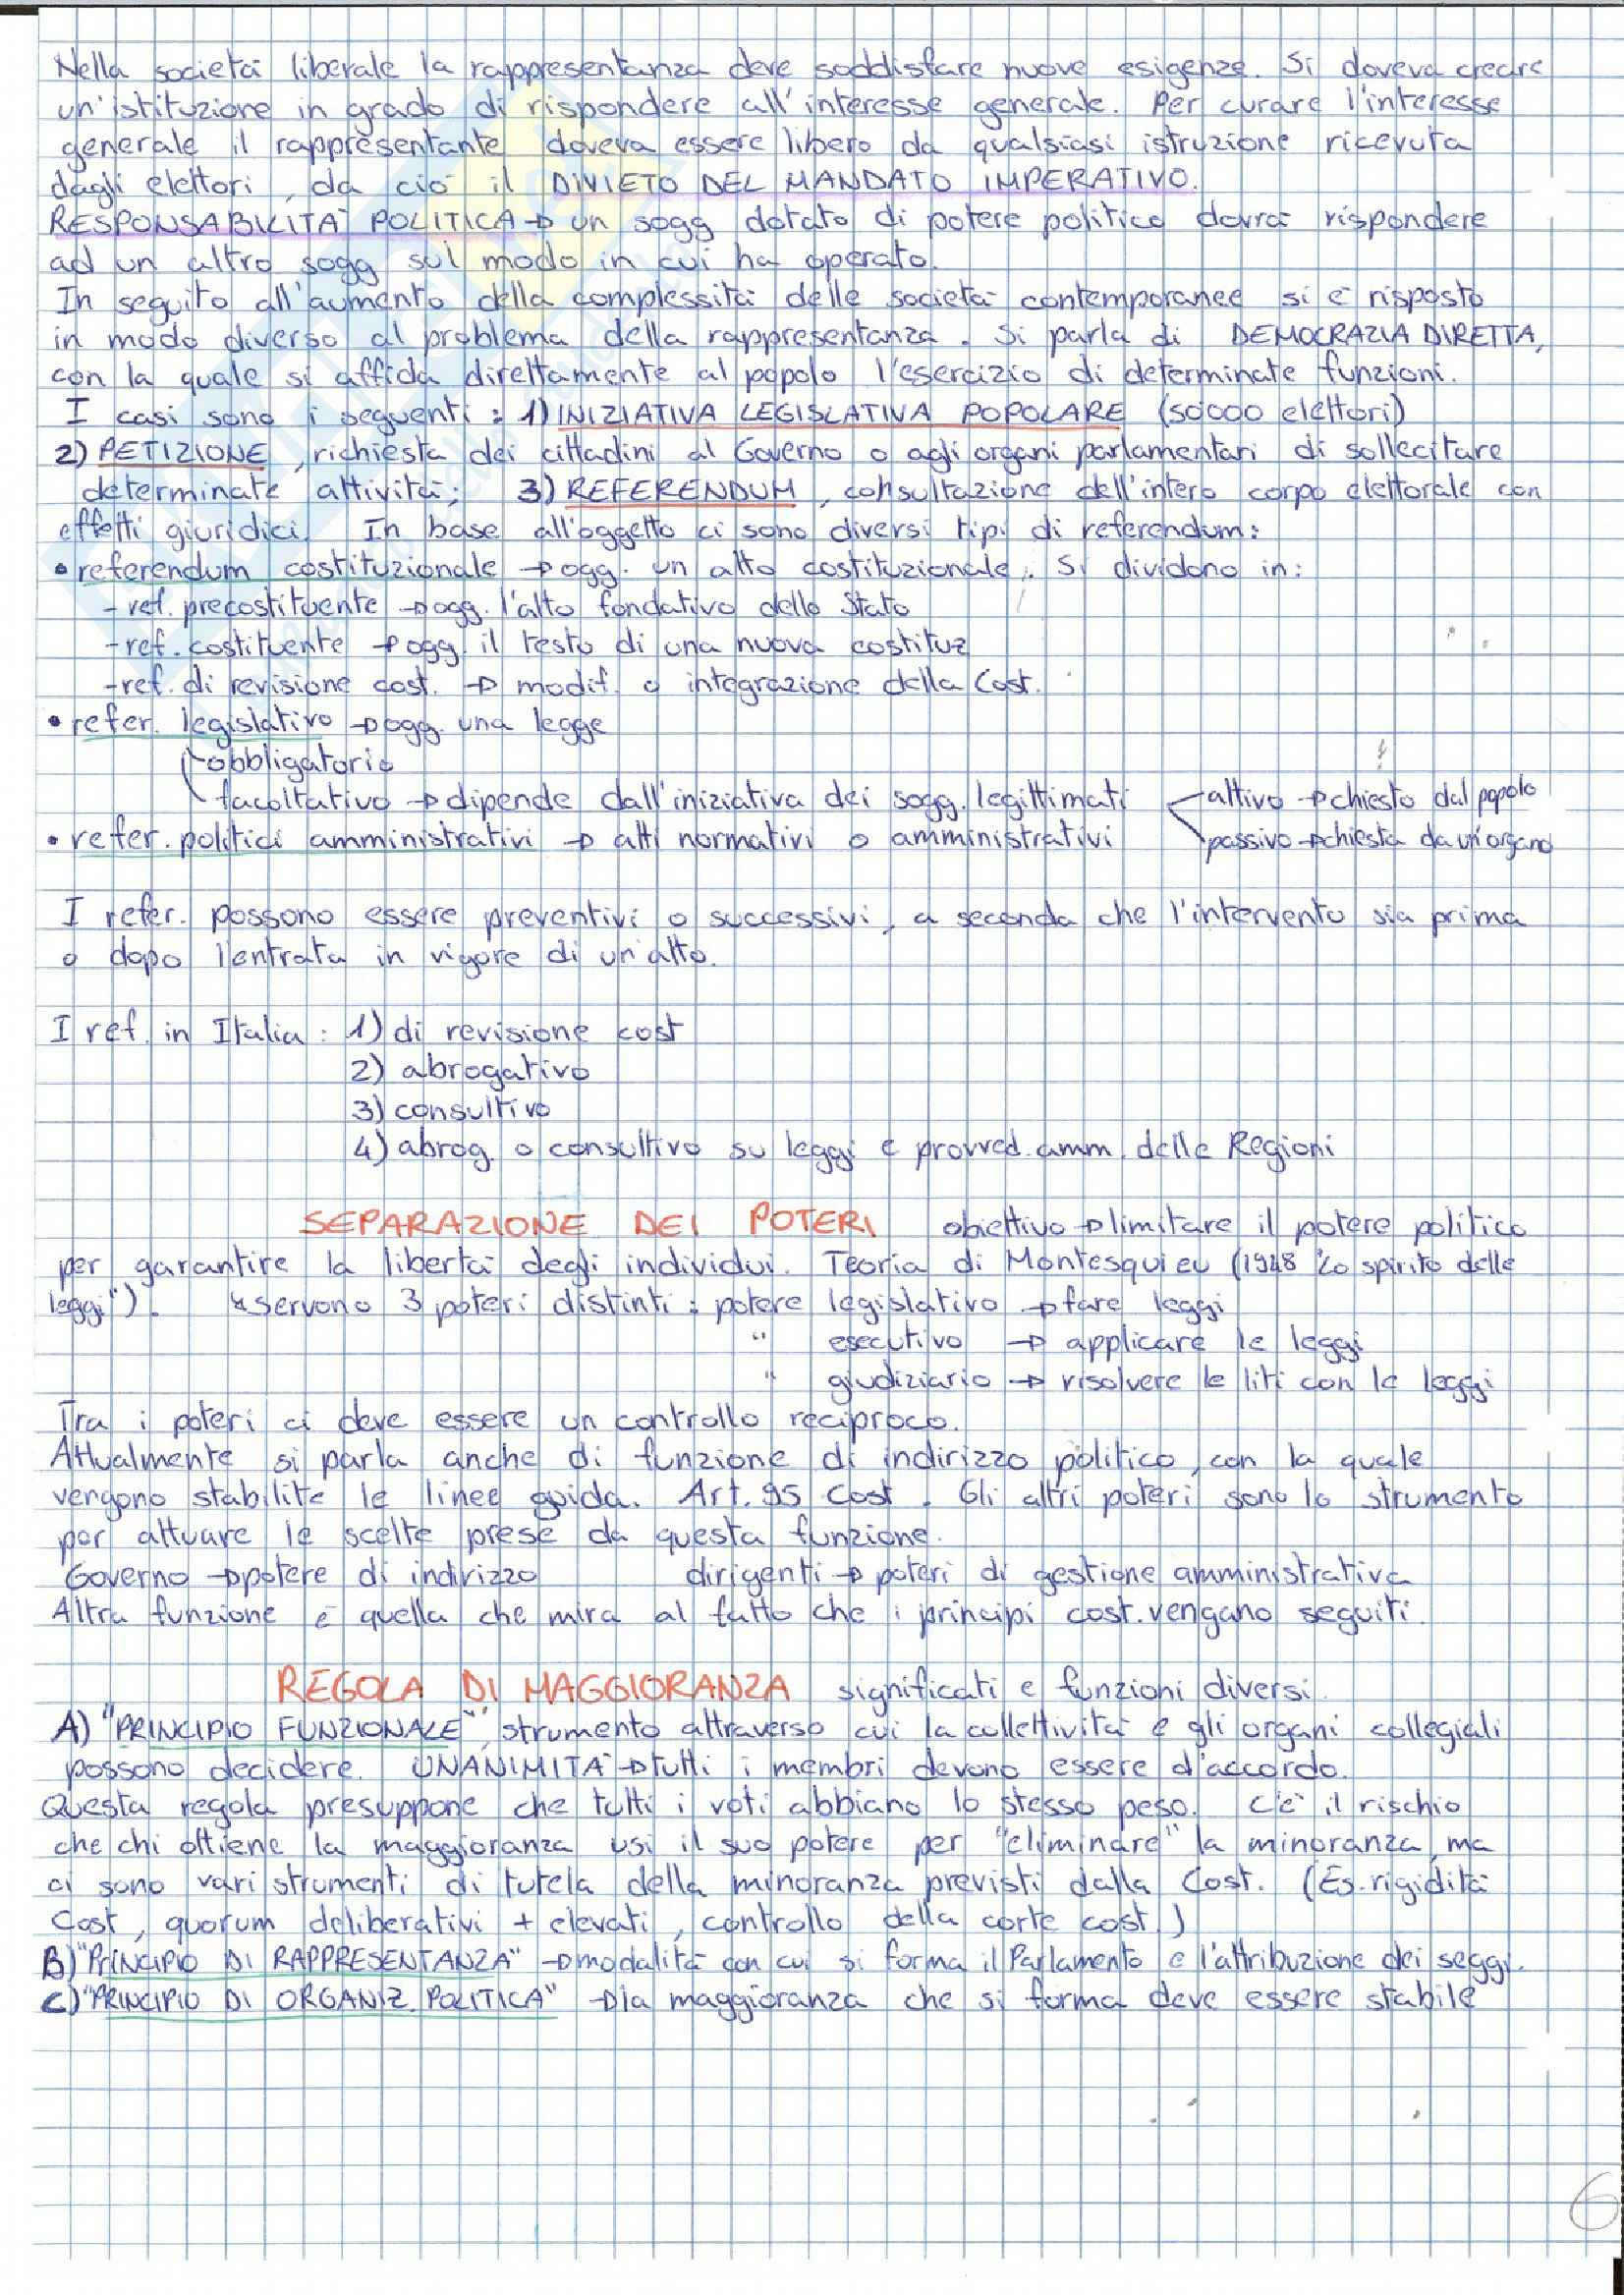 Nella società liberale la rappresentanza deve soddisfare nuove esigenze. Si doveva creare
un'istituzione in grado di rispondere all'interesse generale. Per curare l'interesse
generale il rappresentante doveva essere libero da qualsiasi istruzione ricevuta
dagli elettori, da ciò il DIVIETO DEL MANDATO IMPERATIVO.
RESPONSABILITÀ POLITICA → un sogg dotato di potere politico dovrà rispondere
ad un altro sogg sul modo in cui ha operato.
In seguito all'aumento della complessità delle società contemporanee si è risposto
in modo diverso al problema della rappresentanza. Si parla di DEMOCRAZIA DIRETTA,
con la quale si affida direttamente al popolo l'esercizio di determinate funzioni.
I casi sono i seguenti: 1) INIZIATIVA LEGISLATIVA POPOLARE (50000 elettori)
2) PETIZIONE, richiesta dei cittadini al Governo o agli organi parlamentari di sollecitare
determinate attività; 3) REFERENDUM, consultazione dell'intero corpo elettorale con
effetti giuridici. In base all'oggetto ci sono diversi tipi di referendum:
• referendum costituzionale → ogg. un atto costituzionale. Si dividono in:
- ref. precostituente → ogg. l'atto fondativo dello Stato
- ref. costituente → ogg. il testo di una nuova costituz
- ref. di revisione cost. → modif. o integrazione della Cost.
• refer. legislativo → ogg. una legge
obbligatorio
facoltativo → dipende dall'iniziativa dei sogg. legittimati attivo → chiesto dal popolo
• refer. politici amministrativi → atti normativi o amministrativi passivo → chiesta da un'organo
I refer. possono essere preventivi o successivi, a seconda che l'intervento sia prima
o dopo l'entrata in vigore di un'atto.
I ref. in Italia: 1) di revisione cost
2) abrogativo
3) consultivo
4) abrog. o consultivo su leggi e provved. amm. delle Regioni
SEPARAZIONE DEI POTERI obiettivo → limitare il potere politico
per garantire la libertà degli individui. Teoria di Montesquieu (1948 "Lo spirito delle
leggi"). ↘ servono 3 poteri distinti: potere legislativo → fare leggi
" esecutivo → applicare le leggi
" giudiziario → risolvere le liti con le leggi
Tra i poteri ci deve essere un controllo reciproco.
Attualmente si parla anche di funzione di indirizzo politico, con la quale
vengono stabilite le linee guida. Art. 95 Cost. Gli altri poteri sono lo strumento
per attuare le scelte prese da questa funzione.
Governo → potere di indirizzo dirigenti → poteri di gestione amministrativa
Altra funzione è quella che mira al fatto che i principi cost. vengano seguiti.
REGOLA DI MAGGIORANZA significati e funzioni diversi.
A) "PRINCIPIO FUNZIONALE", strumento attraverso cui la collettività e gli organi collegiali
possono decidere. UNANIMITÀ → tutti i membri devono essere d'accordo.
Questa regola presuppone che tutti i voti abbiano lo stesso peso. C'è il rischio
che chi ottiene la maggioranza usi il suo potere per "eliminare" la minoranza, ma
ci sono vari strumenti di tutela della minoranza previsti dalla Cost. (Es. rigidità
Cost, quorum deliberativi + elevati, controllo della corte cost.)
B) "PRINCIPIO DI RAPPRESENTANZA" → modalità con cui si forma il Parlamento e l'attribuzione dei seggi.
C) "PRINCIPIO DI ORGANIZ. POLITICA" → la maggioranza che si forma deve essere stabile
6